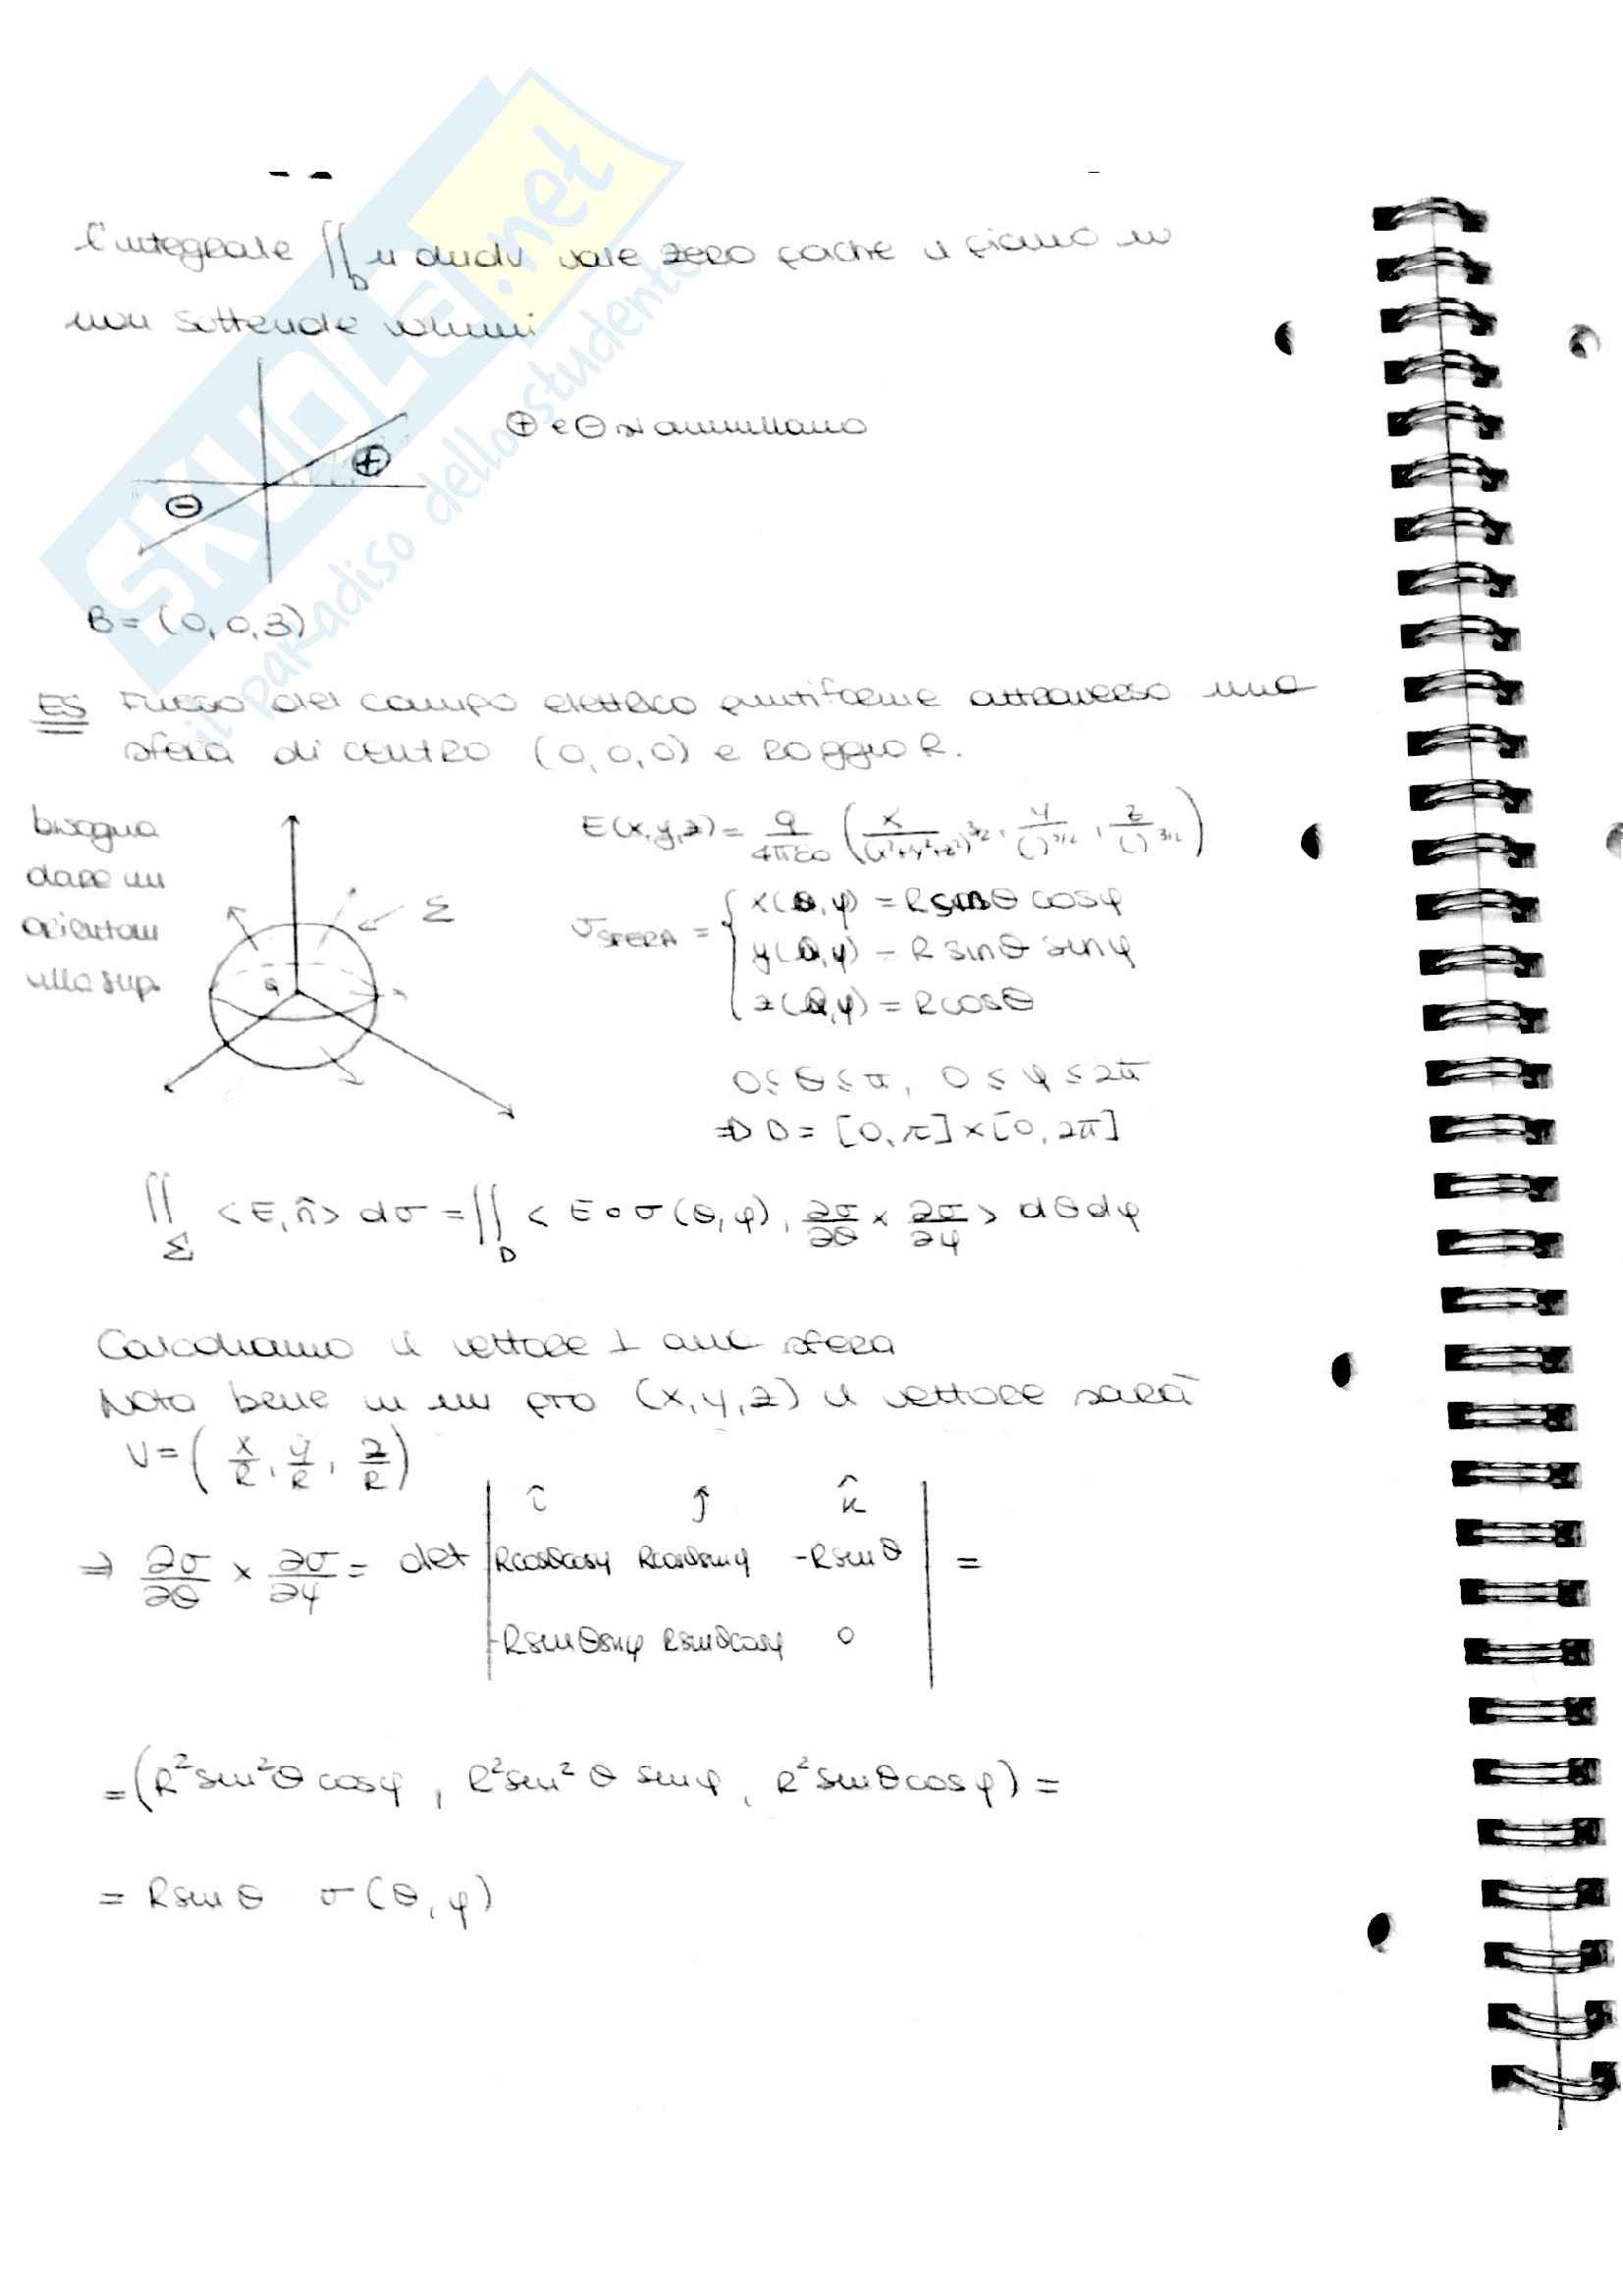 L'integrale ∬_D u dudv vale zero poiché il piano w
non sottende volumi
⊕ e ⊖ si annullano
⊕
⊖
B = (0,0,3)
ES Flusso del campo elettrico puntiforme attraverso una
sfera di centro (0,0,0) e raggio R.
bisogna
dare un
orientam
alla sup.
Σ
q
E(x,y,z) = q/(4πε0) ( x/(x²+y²+z²)^3/2 , y/( )^3/2 , z/( )^3/2 )
σ_SFERA = { x(θ,φ) = R sinθ cosφ
y(θ,φ) = R sinθ sinφ
z(θ,φ) = R cosθ
0 ≤ θ ≤ π, 0 ≤ φ ≤ 2π
⇒ D = [0,π] × [0,2π]
∬_Σ <E, n̂> dσ = ∬_D < E∘σ(θ,φ), ∂σ/∂θ × ∂σ/∂φ > dθdφ
Calcoliamo il vettore ⊥ alla sfera
Nota bene in un pto (x,y,z) il vettore sarà
V = ( x/R , y/R , z/R )
⇒ ∂σ/∂θ × ∂σ/∂φ = det | î ĵ k̂ |
| Rcosθcosφ Rcosθsinφ -Rsinθ | =
| -Rsinθsinφ Rsinθcosφ 0 |
= (R²sin²θ cosφ , R²sin²θ sinφ , R²sinθcosφ) =
= Rsinθ σ(θ,φ)
SKUOLA.net
il paradiso dello studente